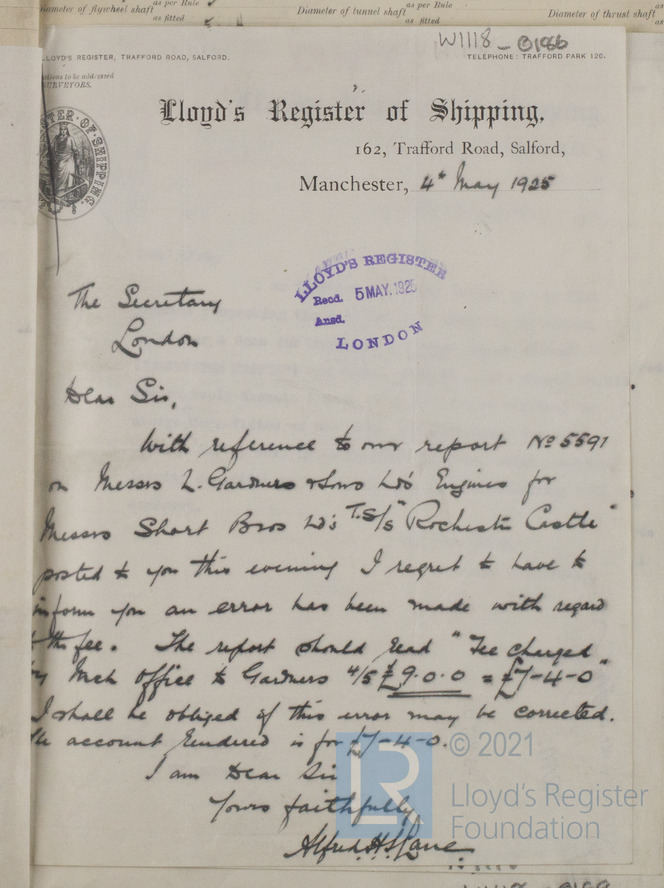 Diameter of flywheel shaft as per Rule as fitted Diameter of tunnel shaft as per Rule as fitted Diameter of thrust shaft as
W1118-0186
LLOYD'S REGISTER, TRAFFORD ROAD, SALFORD. TELEPHONE: TRAFFORD PARK 120.
ations to be addressed
SURVEYORS.
Lloyd's Register of Shipping,
162, Trafford Road, Salford,
Manchester, 4th May 1925
LLOYD'S REGISTER
Recd. 5 MAY.1925
Ansd.
LONDON
The Secretary
London
Dear Sir,
With reference to our report No 5591
on Messrs L. Gardners & Sons Ld's Engines for
Messrs Short Bros Ld's T.S/S "Rochester Castle"
posted to you this evening I regret to have to
inform you an error has been made with regard
to the fee. The report should read "Fee charged
by Mch Office to Gardners 4/5 £9.0.0 = £7-4-0"
I shall be obliged if this error may be corrected.
The account rendered is for £7-4-0.
I am Dear Sir
Yours faithfully
Alfred. H. S. Lane
LR
© 2021
Lloyd's Register
Foundation